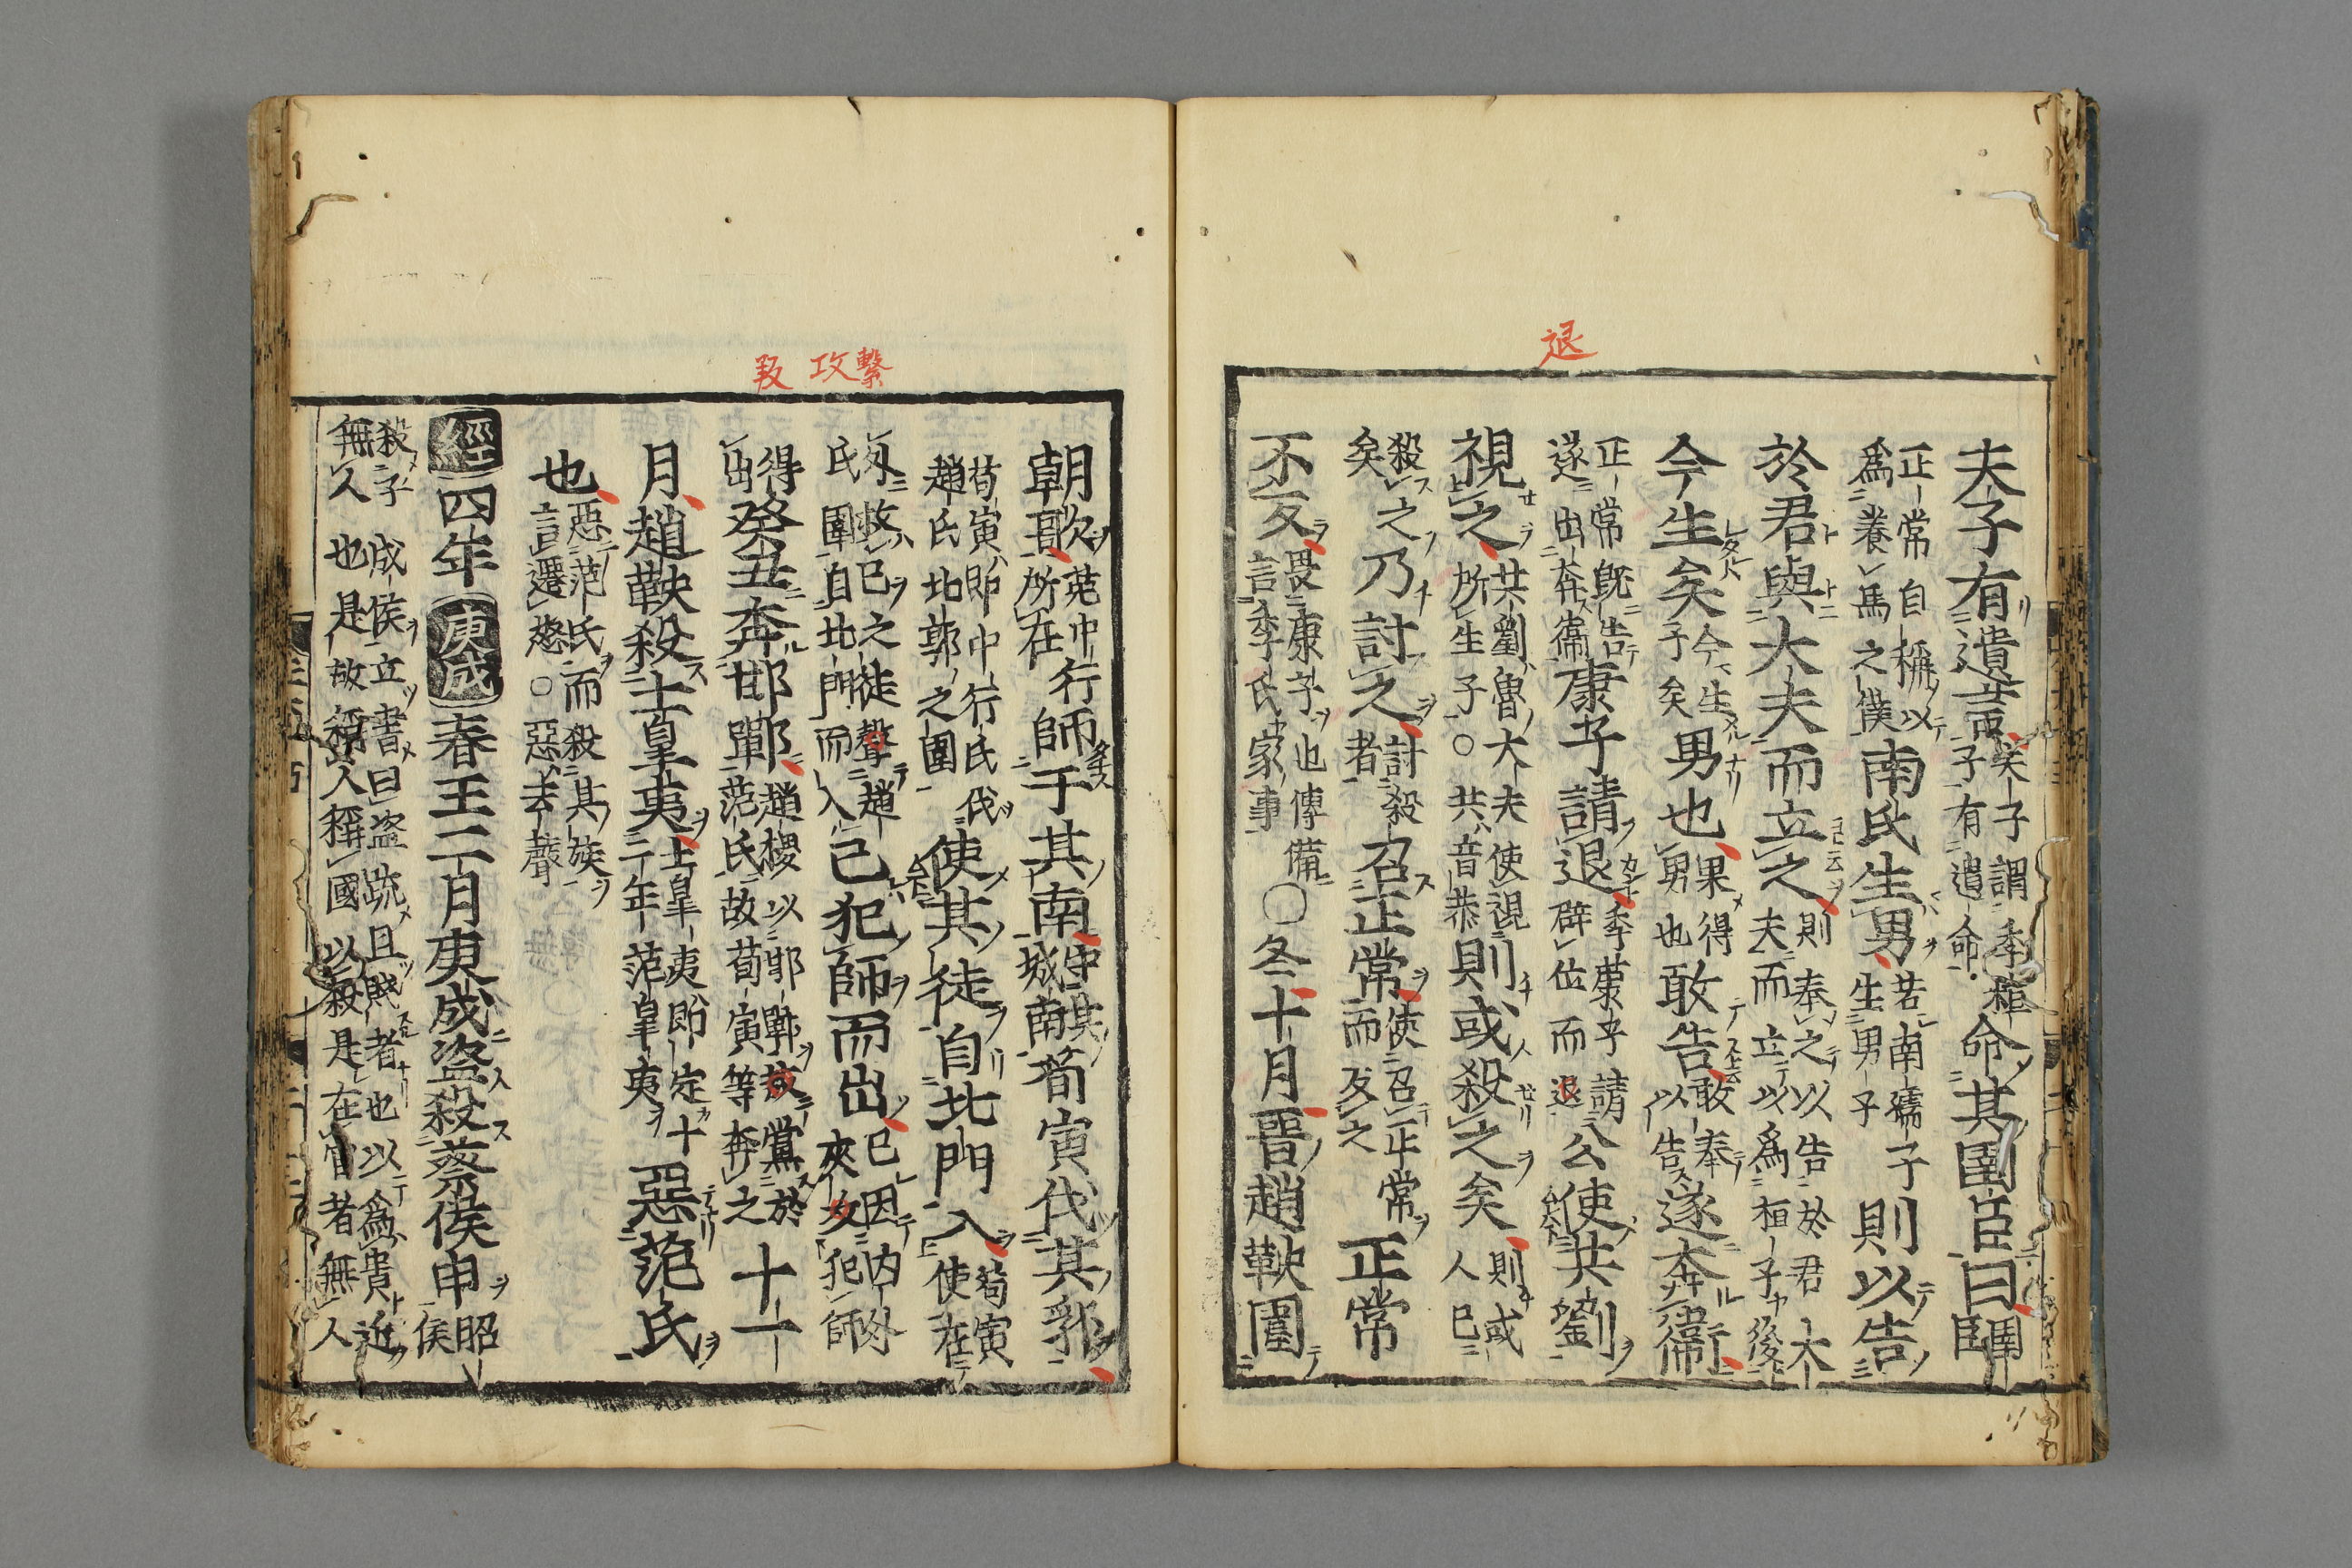 退
夫子有遺言
夫子謂季桓
子有遺命
命其圉臣曰
正常自稱以
爲養馬之僕
南氏生男
若南孺子
生男子
則以告
於君與大夫而立之
則奉之以告於君大
夫而立以爲桓子後
今生矣
今生
子矣
男也
果得
男也
敢告
敢奉
以告
遂奔衞
正常既告
遂出奔衞
康子請退
季康子請
辟位而退
公使共劉
視之
共劉魯大夫使視
所生子○共音恭
則或殺之矣
則或
人已
殺之
矣
乃討之
討殺
者
召正常
使召正常
而反之
正常
不反
畏康子也傳備
言季氏家事
○冬十月晉趙鞅圍
繫
攻
叛
朝歌
范中行
所在
師于其南
屯其
城南
荀寅伐其郛
荀寅即中行氏伐
趙氏北郭之圍
使其徒自北門入
荀寅
使在
外救己之徒聲趙
氏圍自北門而入
己犯師而出
己因内外
夾攻犯師
得
出
癸丑奔邯鄲
趙稷以邯鄲故黨於
范氏故荀寅等奔之
十一
月趙鞅殺士皐夷
士皐夷即定十
三年范皐夷
惡范氏
也
惡范氏而殺其族
言遷怒○惡去聲
經四年庚戌春王二月庚戌盗殺蔡侯申
昭
侯
殺子成侯立書曰盗疏且賤者也以爲貴近
無人也是故稱人稱國以殺是在官者無人